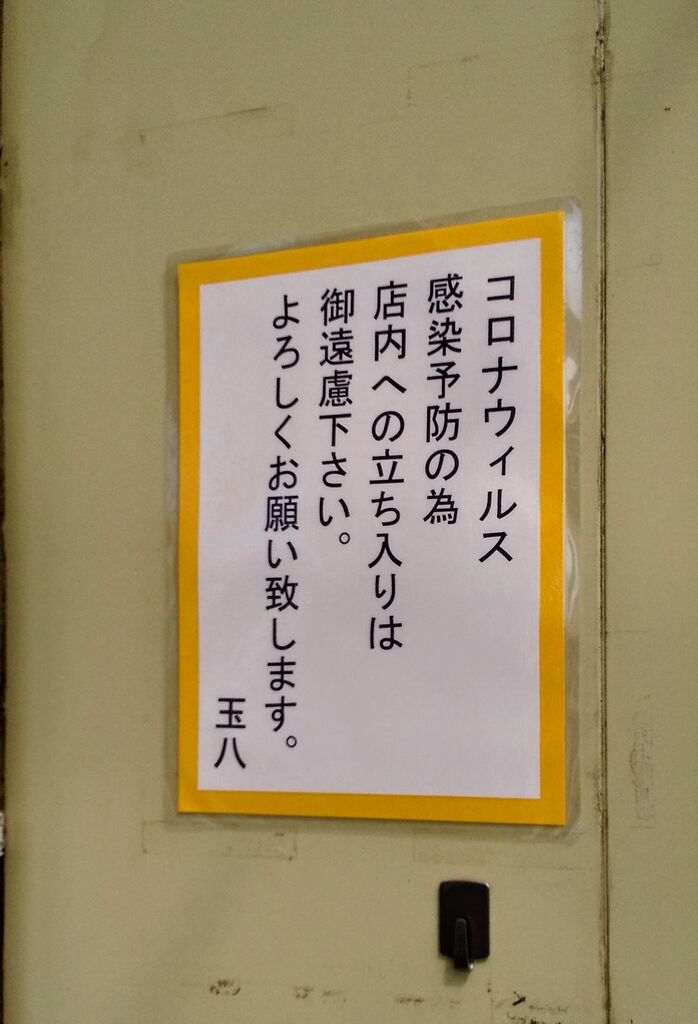 コロナウィルス
感染予防の為
店内への立ち入りは
御遠慮下さい。
よろしくお願い致します。
玉八